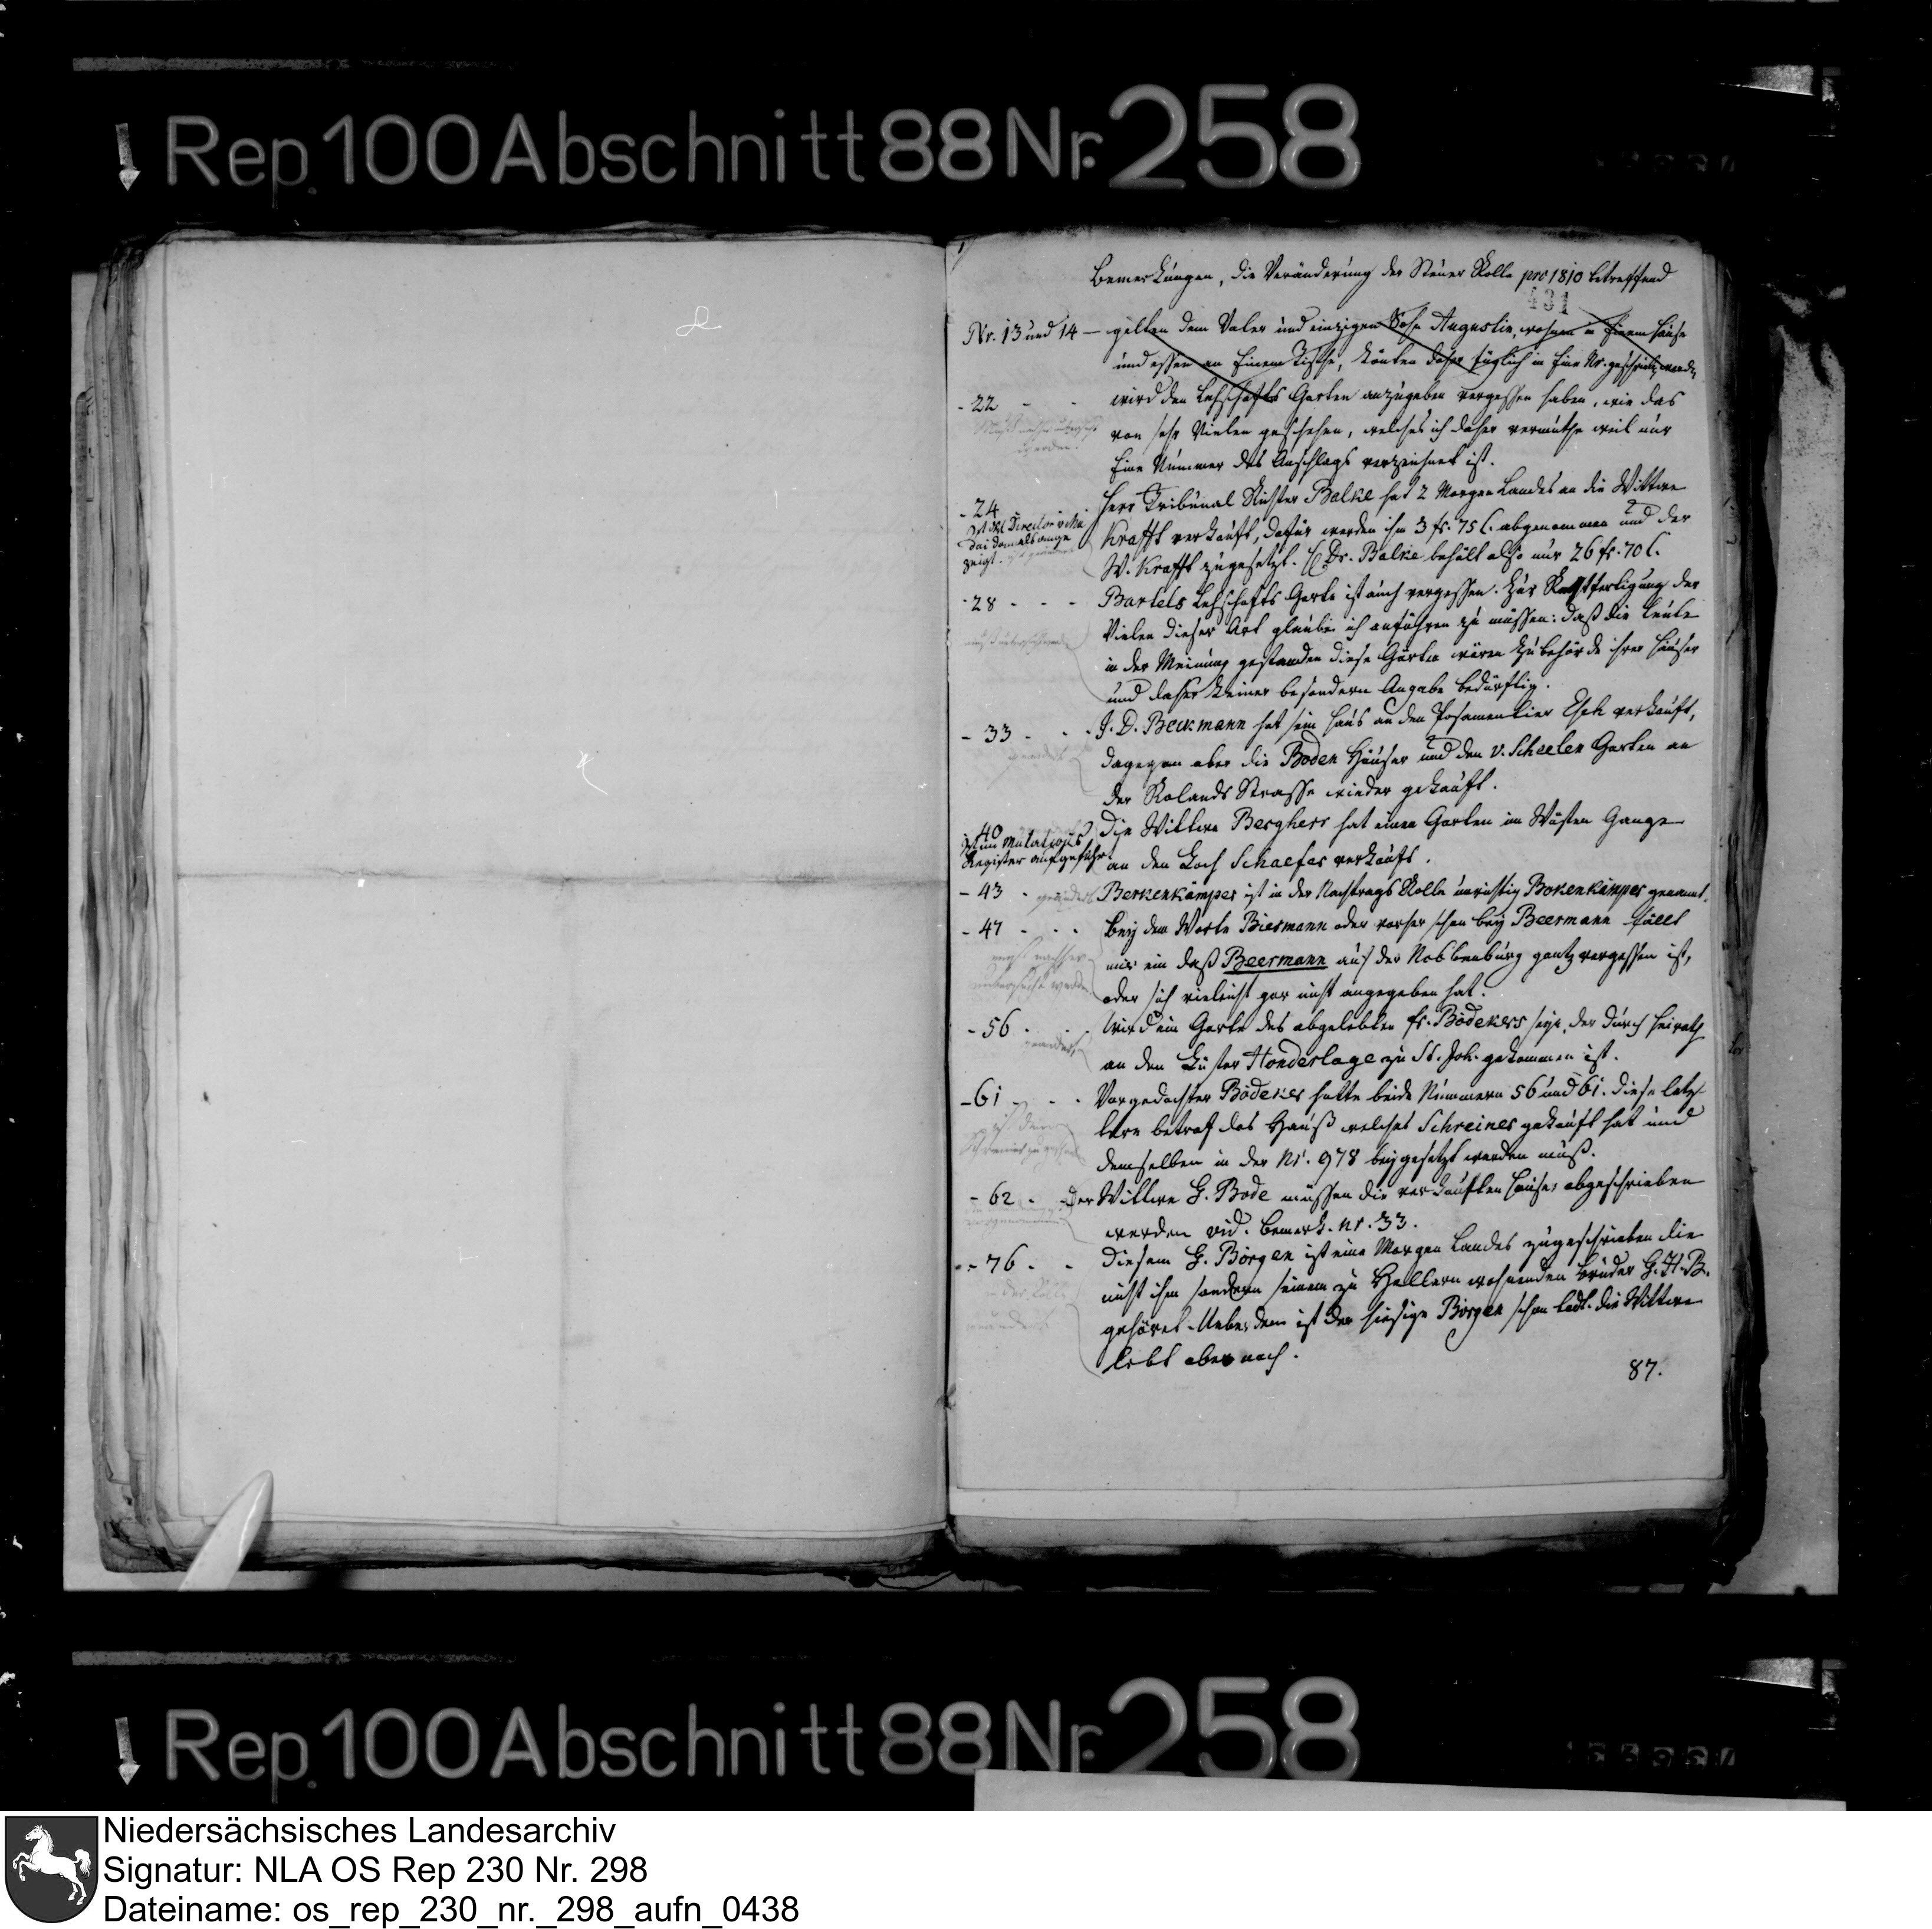 Rep. 100 Abschnitt 88 Nr. 258
Bemerkungen, die Veränderung der Steuer Rolle pro 1810 betreffend
431
Nr. 13 und 14 — gelten dem Vater und einzigen Sohn Augustin, wohnen in Einem Hause
und essen an Einem Tische, könten daher füglich in Eine Nr. geschrieb. werden
- 22 - - wird den Leyschafts Garten anzugeben vergessen haben, wie das
von sehr Vielen geschehen, welches ich daher vermuthe weil nur
Eine Nummer des Anschlags verzeichnet ist.
- 24 Herr Tribunal Richter Balke hat 2 Morgen Landes an die Wittwe
Krafft verkauft, dafür werden ihm 3 fr. 75 C. abgenommen und der
W. Krafft zugesetzt. Hr. Dr. Balke behält also nur 26 fr. 70 C.
- 28 - - - Bartels Leyschafts Garte ist auch vergessen. Zur Rechtfertigung der
Vielen dieser Art glaube ich anführen zu müssen: daß die Leute
in der Meinung gestanden diese Gärten wären Zubehörde ihrer Häuser
und daher keiner besondern Angabe bedürftig.
- 33 - - - J. D. Beckmann hat sein Haus an den Posamentier Esch verkauft,
geändert
dagegen aber die Boden Häuser und den v. Scheelen Garten an
der Rolands Strasse wieder gekauft.
- 40 Die Wittwe Bergherr hat einen Garten im Wüsten Gange
ist im Mutations
Register aufgeführt
an den Koch Schaefer verkauft.
- 43 - geändert Berkenkämper ist in der Nachtrags Rolle unrichtig Bokenkämper genannt.
- 47 - - - Bey dem Worte Biermann oder vorher schon bey Beermann fällt
mir ein daß Beermann auf der Nobbenburg gantz vergessen ist,
oder sich vieleicht gar nicht angegeben hat.
- 56 - - - Wird ein Garte des abgelebten fr. Bödekers seyn, der durch Heirath
geändert
an den Küster Honderlage zu St. Joh. gekommen ist.
- 61 - - - Vorgedachter Bödeker hatte beide Nummern 56 und 61. diese letz-
tere betraf das Hauß welches Schreiner gekauft hat und
demselben in der Nr. 978 beygesetzt werden muß.
- 62 - Der Wittwe G. Bode müssen die verkauften Häuser abgeschrieben
werden vid. Bemerk. Nr. 33.
- 76 - - Diesem G. Börgen ist eine Morgen Landes zugeschrieben die
nicht ihm sondern seinem zu Hellern wohnenden Bruder G. H. B.
gehöret. Ueberdem ist der hiesige Börgen schon todt. die Wittwe
lebt aber noch.
87.
Rep. 100 Abschnitt 88 Nr. 258
Niedersächsisches Landesarchiv
Signatur: NLA OS Rep 230 Nr. 298
Dateiname: os_rep_230_nr._298_aufn_0438